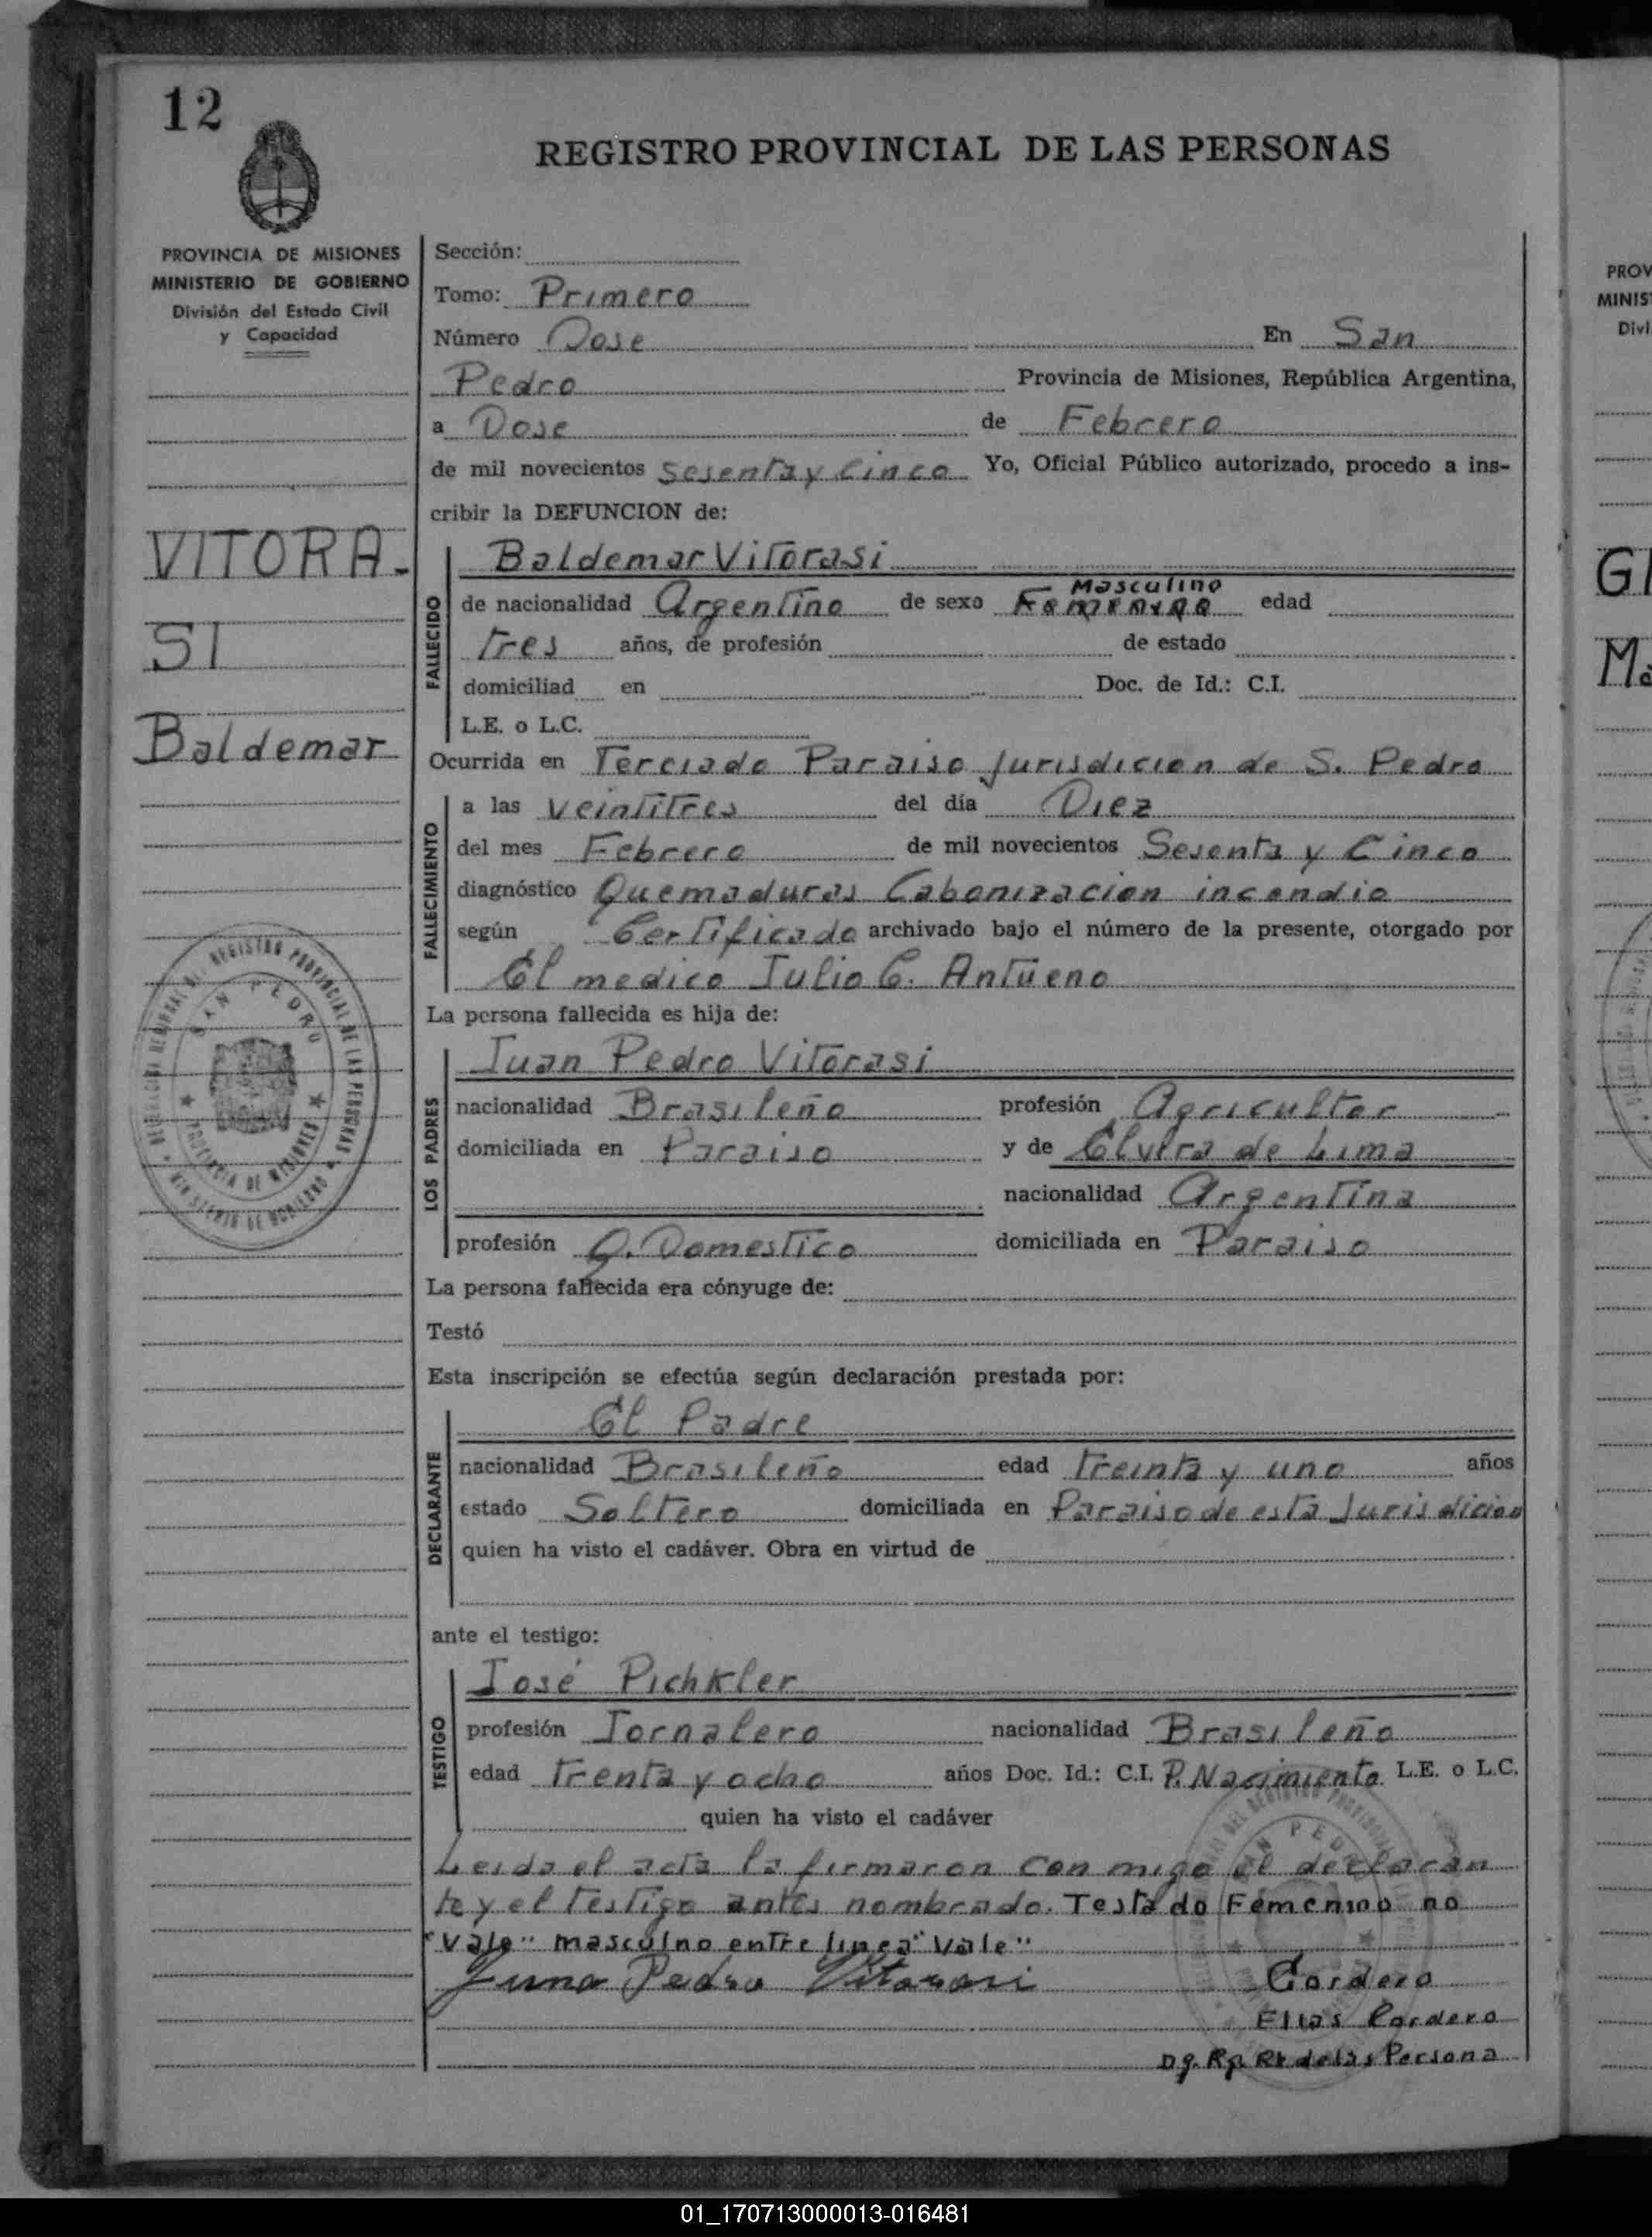 12
REGISTRO PROVINCIAL DE LAS PERSONAS
PROVINCIA DE MISIONES
MINISTERIO DE GOBIERNO
División del Estado Civil
y Capacidad
VITORA-
SI
Baldemar
Sección:
Tomo: Primero
Número Dose En San
Pedro Provincia de Misiones, República Argentina,
a Dose de Febrero
de mil novecientos sesenta y cinco Yo, Oficial Público autorizado, procedo a ins-
cribir la DEFUNCION de:
FALLECIDO
Baldemar Vitorasi
Masculino
de nacionalidad Argentino de sexo Femenino edad
Tres años, de profesión de estado
domiciliad en Doc. de Id.: C.I.
L.E. o L.C.
Ocurrida en Terciado Paraiso Jurisdicion de S. Pedro
FALLECIMIENTO
a las veintitres del día Diez
del mes Febrero de mil novecientos Sesenta y Cinco
diagnóstico Quemaduras Cabonizacion incendio
según Certificado archivado bajo el número de la presente, otorgado por
El medico Julio C. Antueno
La persona fallecida es hija de:
LOS PADRES
Juan Pedro Vitorasi
nacionalidad Brasileño profesión Agricultor
domiciliada en Paraiso y de Elvira de Lima
nacionalidad Argentina
profesión Q. Domestico domiciliada en Paraiso
La persona fallecida era cónyuge de:
Testó
Esta inscripción se efectúa según declaración prestada por:
DECLARANTE
El Padre
nacionalidad Brasileño edad Treinta y uno años
estado Soltero domiciliada en Paraiso de esta Jurisdicion
quien ha visto el cadáver. Obra en virtud de
ante el testigo:
TESTIGO
José Pichkler
profesión Jornalero nacionalidad Brasileño
edad Trenta y ocho años Doc. Id.: C.I. P. Nacimiento L.E. o L.C.
quien ha visto el cadáver
Leida el acta la firmaron con migo el declaran
te y el Testigo antes nombrado. Testado Femenino no
"vale" masculno entre linea "vale"
Juna Pedro Vitorasi Cordero
Elias Cordero
Dg. Rp. Rt de las Persona
PROV
MINIS
Divi
GI
Ma
01_170713000013-016481